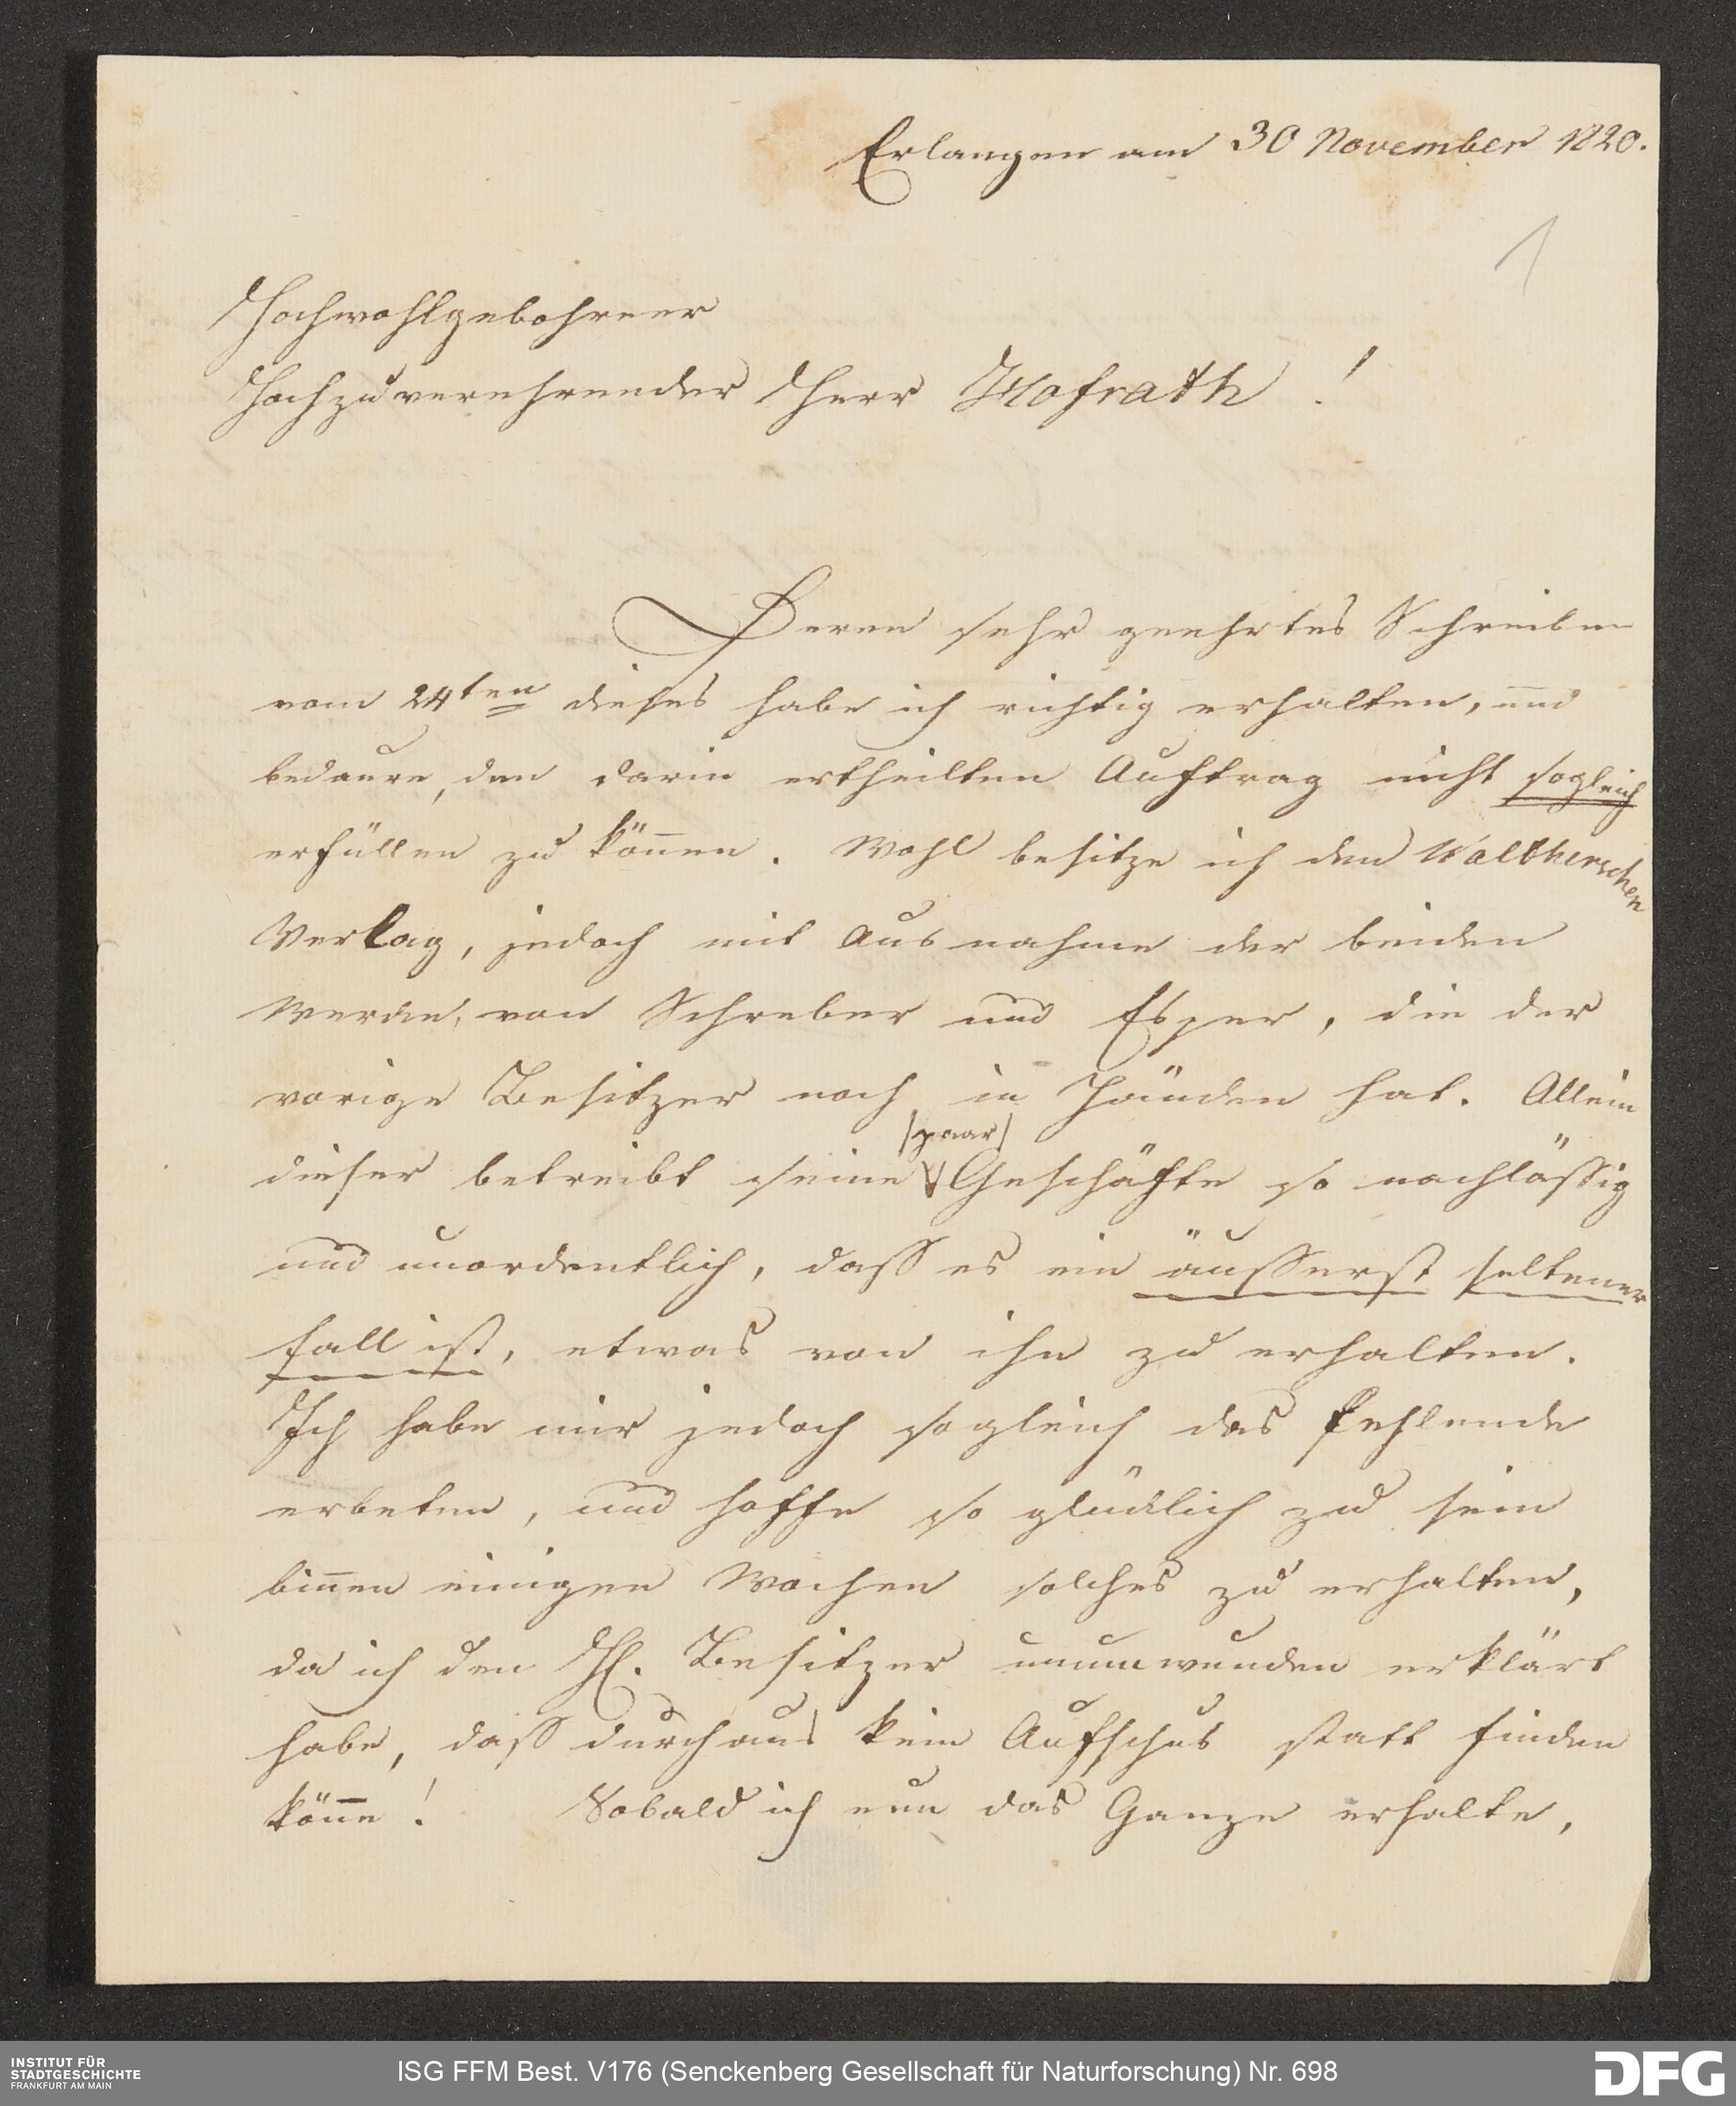 Erlangen am 30 November 1820.
1
Hochwohlgebohrner
Hochzuverehrender Herr Hofrath !
Deren sehr geehrtes Schreiben
vom 24ten dieses habe ich richtig erhalten, und
bedaure, den darin ertheilten Auftrag nicht sogleich
erfüllen zu können. Wohl besitze ich den Waltherschen
Verlag, jedoch mit Ausnahme der beiden
Werke, von Schreber und Esper, die der
vorige Besitzer noch in Händen hat. Allein
|paar|
dieser betreibt seine Geschäfte so nachläßig
und unordentlich, dass es ein äusserst seltener
fall ist, etwas von ihn zu erhalten.
Ich habe mir jedoch sogleich das fehlende
erbeten, und hoffe so glücklich zu sein
binnen einigen Wochen solches zu erhalten,
da ich den H. Besitzer unumwunden erklärt
habe, dass durchaus kein Aufschub statt finden
könne ! Sobald ich nun das Ganze erhalte,
INSTITUT FÜR
STADTGESCHICHTE
FRANKFURT AM MAIN
ISG FFM Best. V176 (Senckenberg Gesellschaft für Naturforschung) Nr. 698
DFG